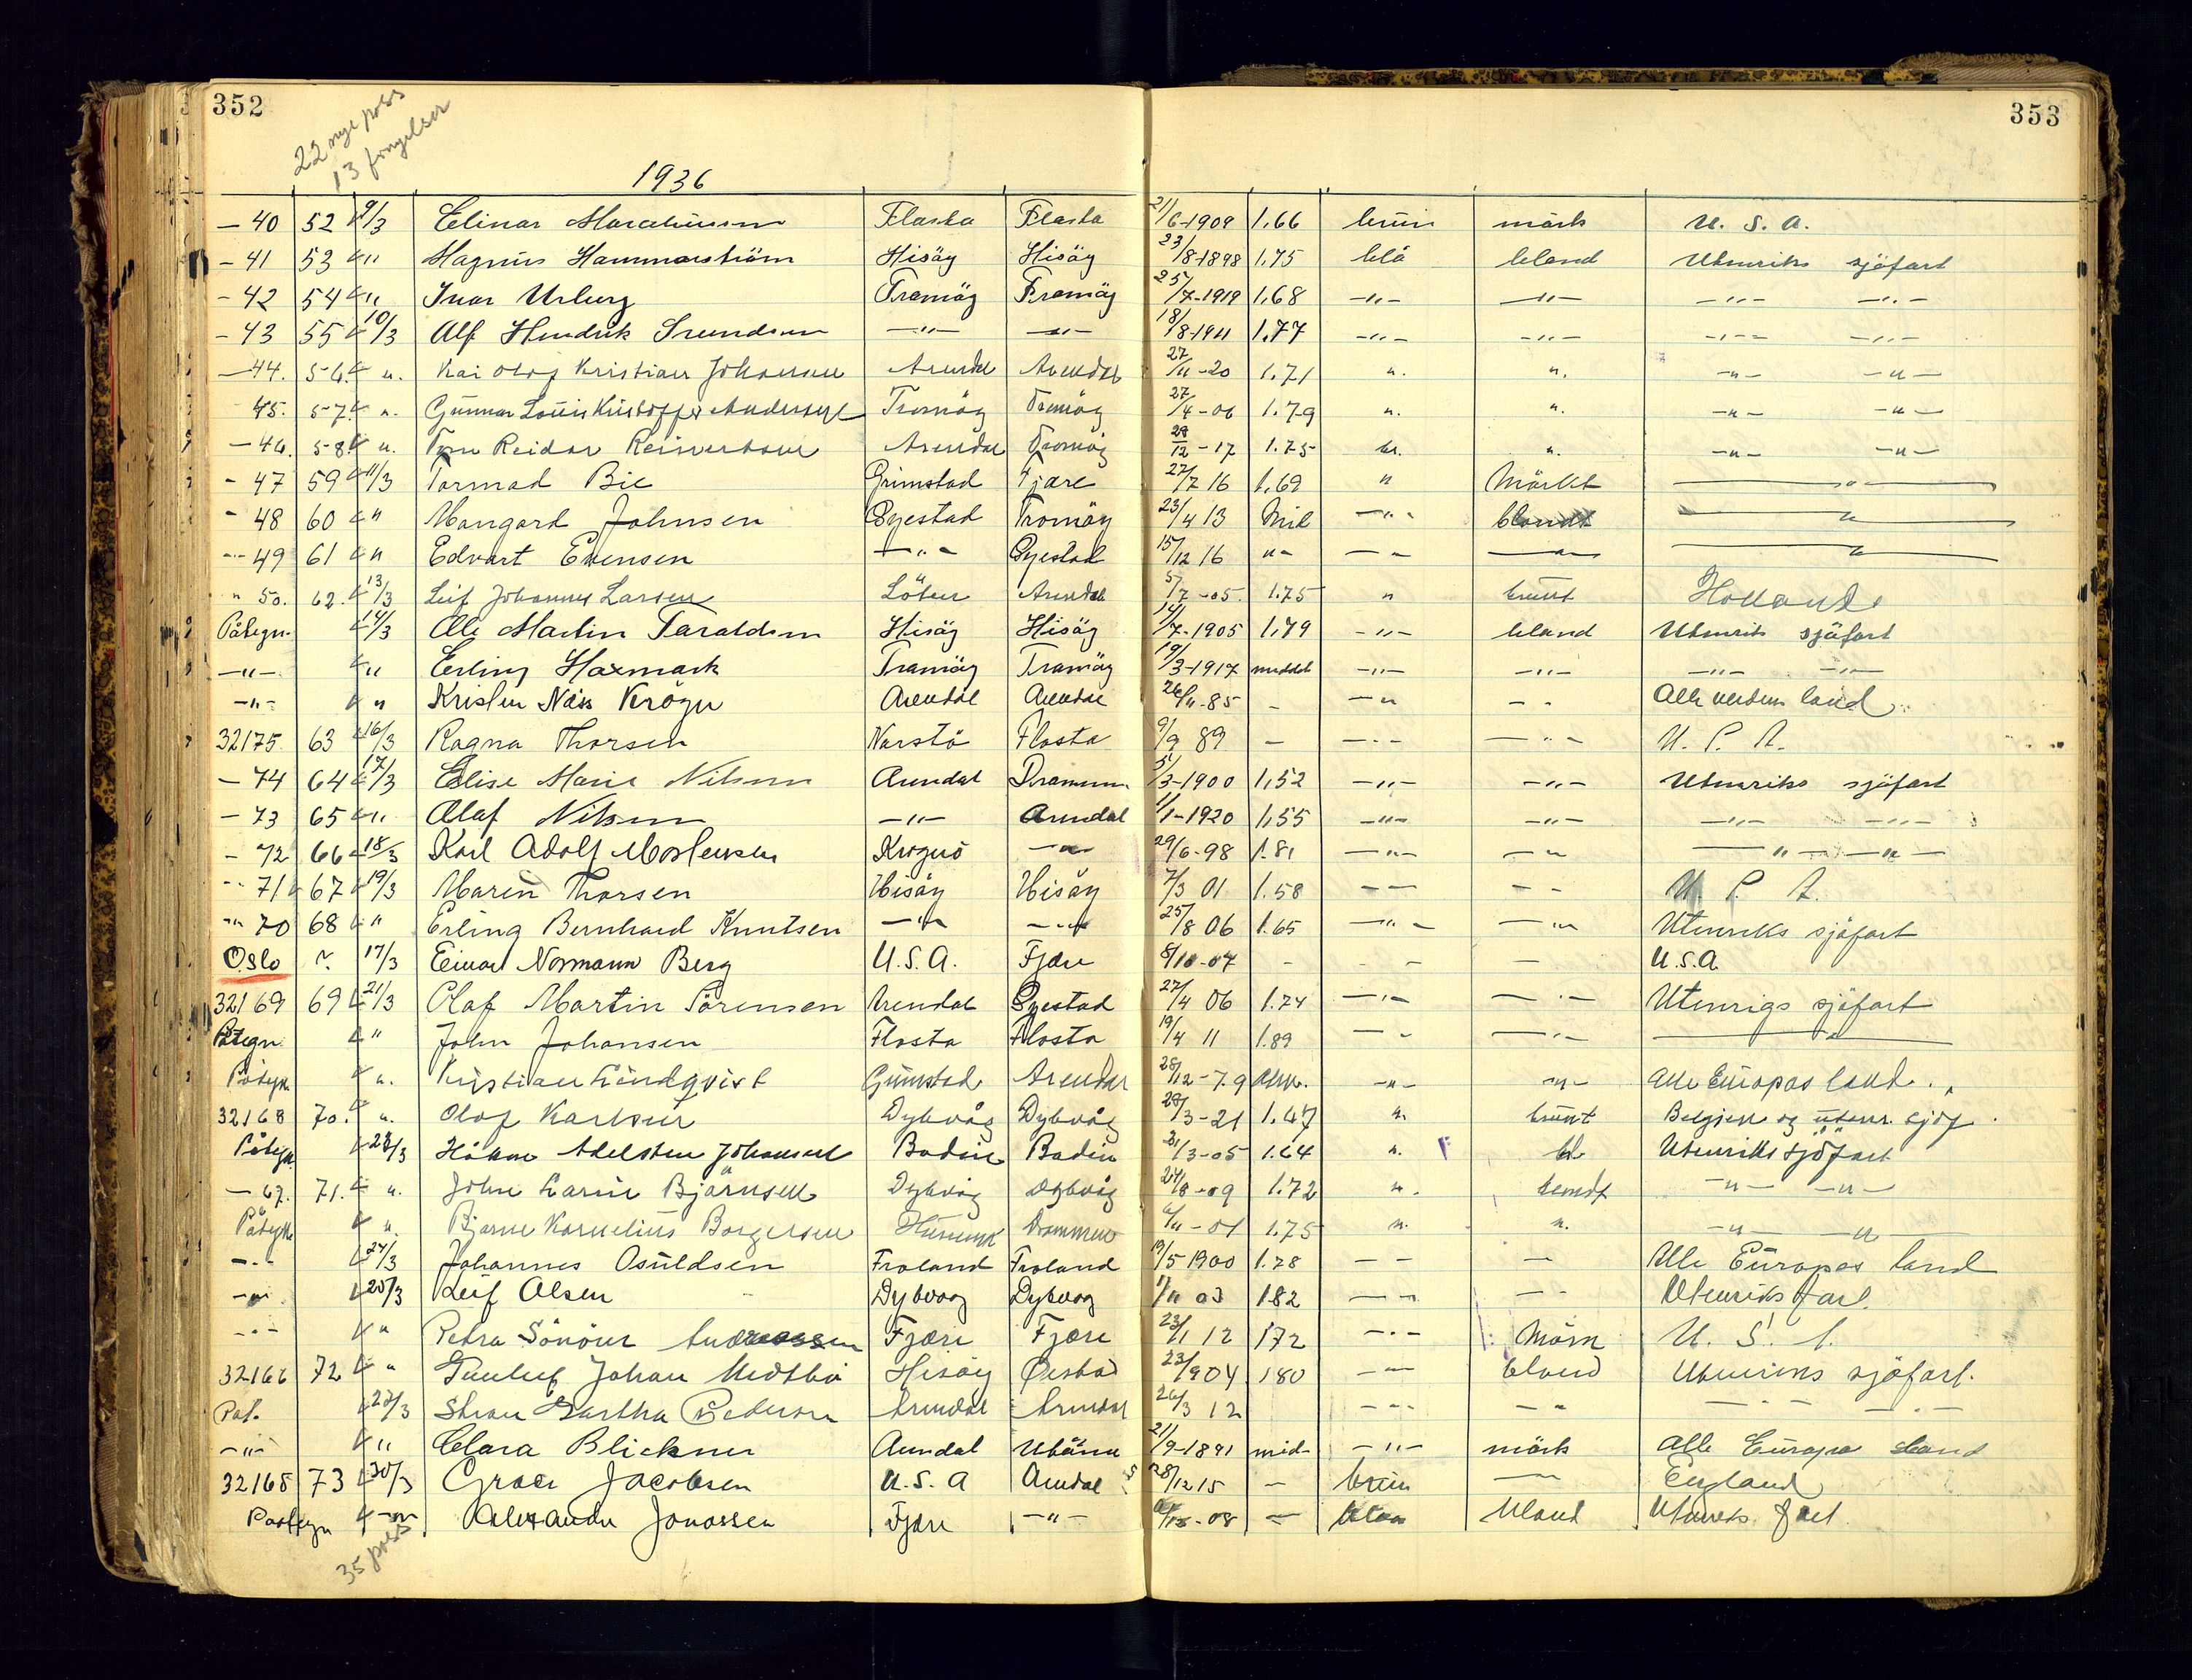 352
353
22 nye pass
13 fornyelser
1936
— 40 52 9/3 Elinar Flasta Flasta 21/6-1909 1.66 brun mörk U. S. A.
— 41 53 " Magnus Hammarström Hisöy Hisöy 23/8-1898 1.75 blå blond Utenriks sjöfart
— 42 54 " Ivar Urberg Tromöy Tromöy 25/7-1919 1.68 —"— —"— —"— —"—
— 43 55 10/3 Alf Hendrik Svendsen —"— —"— 18/8-1911 1.77 —"— —"— —"— —"—
— 44. 56. " Kai Olaf Kristian Johansen Arendal Arendal 27/11-20 1.71 " " —"— —"—
45. 57. " Gunnar Louis Kristoffer Andersen Tromöy Tromöy 27/4-06 1.79 " " —"— —"—
— 46. 58. " Reidar Arendal Tromöy 28/12-17 1.75 br. " —"— —"—
— 47 59 11/3 Tormod Bie Grimstad Fjære 27/7 16 1.69 " Mörkt —"—
— 48 60 " Mangard Johnsen Öyestad Tromöy 23/4 13 Mid —"— blondt —"—
— 49 61 " Edvart Evensen —"— Öyestad 15/12 16 "— —"— —"— —"—
" 50. 62. 13/3 Leif Johannes Larsen Löten Arendal 5/7-05. 1.75 " brunt Holland
Påtegn. 14/3 Ole Martin Taraldsen Hisöy Hisöy 14/7-1905 1.79 —"— blond Utenriks sjöfart
—"— " Erling Haxmark Tromöy Tromöy 19/3-1917 middel —"— —"— —"— —"—
—"— " Kristen Näss Krögn Arendal Arendal 26/11-85 — —"— —"— Alle verdens land
32175 63 16/3 Ragna Thorsen Narstö Flosta 9/9 89 — —"— —"— U. S. A.
— 74 64 17/3 Elise Marie Nilsen Arendal Drammen 5/3-1900 1,52 —"— —"— Utenriks sjöfart
— 73 65 " Olaf Nilsen —"— Arendal 1/1-1920 1,55 —"— —"— —"— —"—
— 72 66 18/3 Karl Adolf Mortensen Kragerö —"— 29/6-98 1.81 —"— —"— —"— —"—
— 71 67 19/3 Maren Thorsen Hisöy Hisöy 7/3 01 1.58 —"— —"— U. S. A.
— 70 68 " Erling Bernhard Knutsen —"— —"— 25/8 06 1.65 —"— —"— Utenriks sjöfart
Oslo 17/3 Einar Normann Berg U.S.A. Fjære 8/10-07 - - — U.S.A.
32169 69 21/3 Olaf Martin Sörensen Arendal Öyestad 27/4 06 1.74 —"— —"— Utenrigs sjöfart
Påtegn. " John Johansen Flosta Flosta 19/4 11 1.89 —"— —"— —"—
Påtegn " Kristian Lindqvist Grimstad Arendal 28/12-79 —"— —"— Alle Europas land.
32168 70. " Olaf Karlsen Dybvåg Dybvåg 28/3-21 1.47 " brunt Belgien og utenr. sjöf.
Påtegn 23/3 Håkon Adelsten Johansen Bodin Bodin 31/3-05 1.64 " bl. Utenriks sjöfart
— 67. 71. " John Karin Björnsen Dybvåg Dybvåg 24/8-09 1.72 " blondt —"— —"—
Påtegn " Bjarne Kornelius Borgersen Drammen 6/11-01 1.75 " " —"— —"—
—"— 24/3 Johannes Osuldsen Froland Froland 19/5 1900 1.78 — — — Alle Europas land
—"— 25/3 Leif Olsen Dybvaag Dybvaag 1/11 03 1.82 —"— —"— Utenriks fart.
—"— " Petra Sönöve Andreassen Fjære Fjære 23/1 12 172 —"— Mörk U. S. A.
32166 72 " Gunleif Johan Hisöy Öiestad 23/9 04 180 —"— blond Utenriks sjöfart.
Påt. 27/3 Gartha Pedersen Arendal Arendal 26/3 12 —"— —"— —"— —"—
—"— " Clara Blickner Arendal 21/9-1891 mid- —"— mörk Alle Europas land
32165 73 30/3 Grace Jacobsen U.S.A Arendal 28/12 15 — brun — England
Paategn —"— Alexander Jonassen Fjære —"— -08 — blaa blond Utenriks fart
35 pass